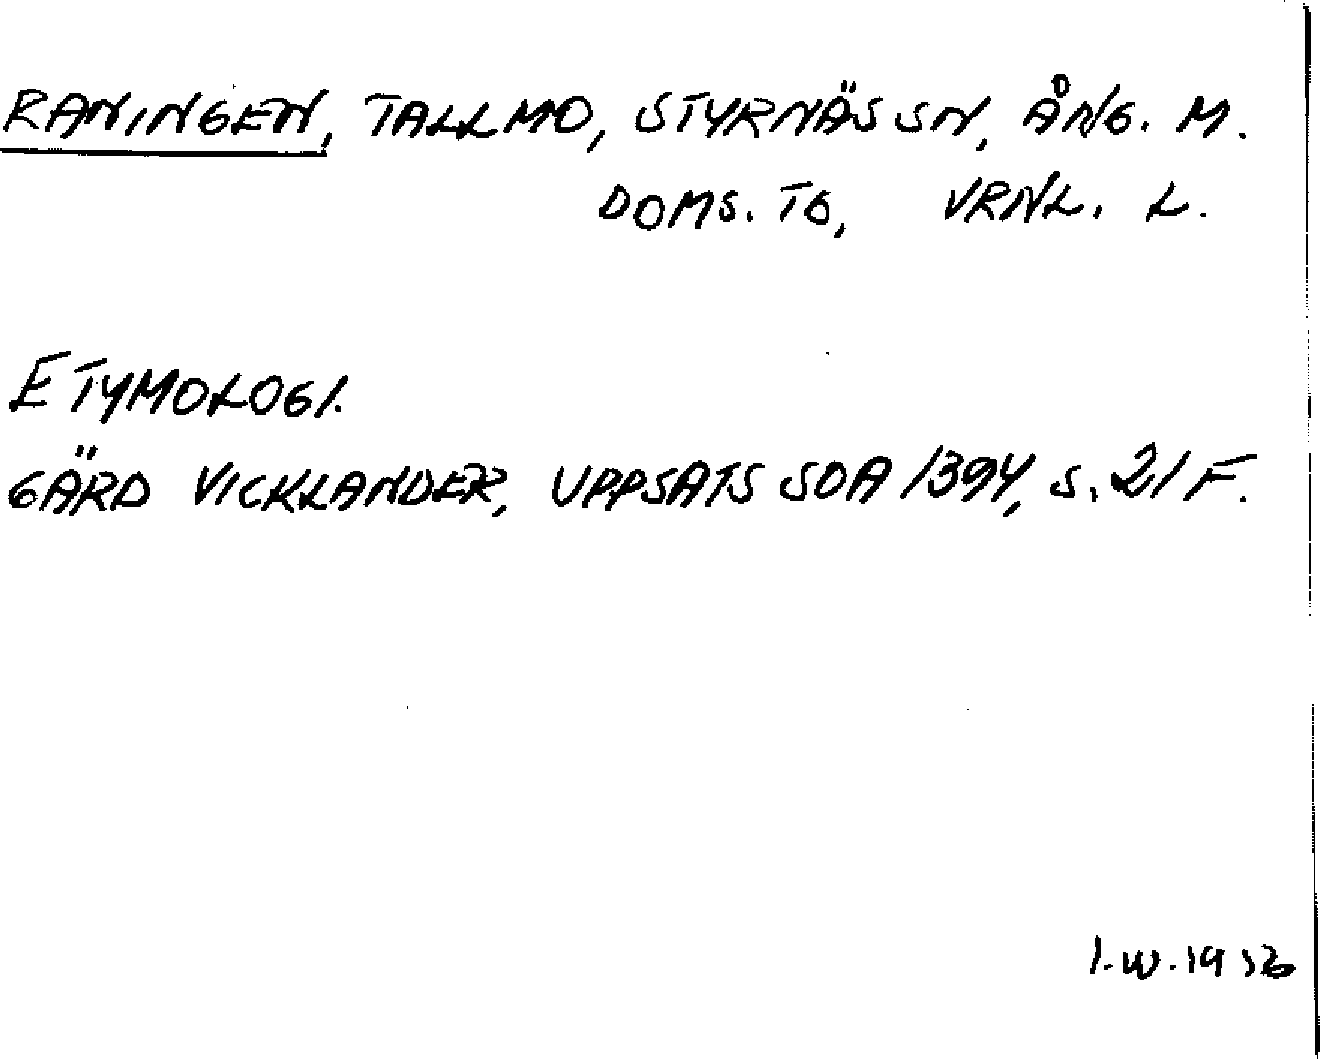 RANINGEN, TALLMO, STYRNÄS SN, ÅNG. M.
DOMS. TG, VRNL. L.
ETYMOLOGI.
GÄRD VICKLANDER, UPPSATS SOA 1394, S. 21 F.
I.W. 19